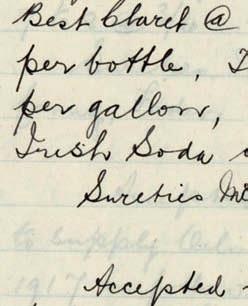 Best Claret @
per bottle,
per gallon,
Irish Soda
Sureties
Accepted